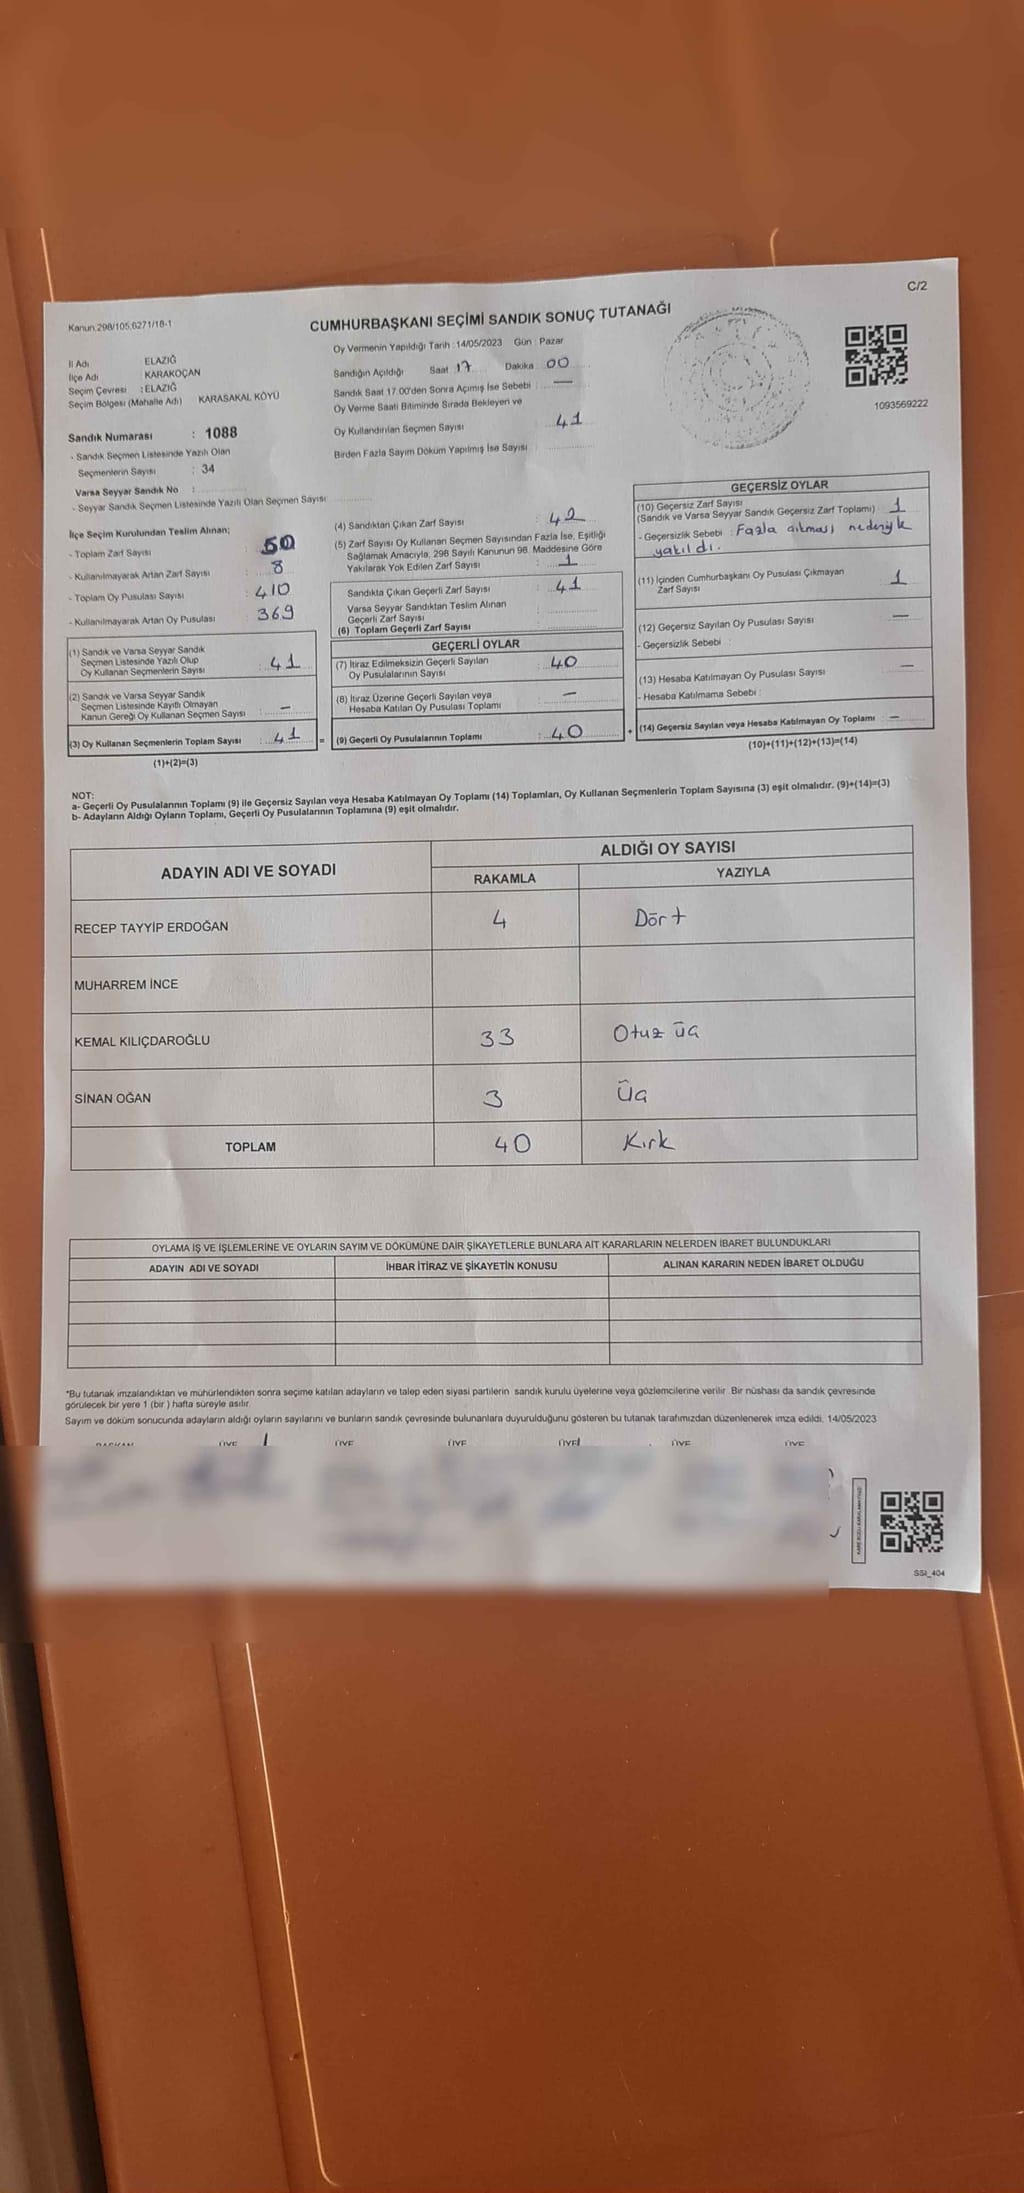 C/2
Kanun.298/105,6271/18-1
CUMHURBAŞKANI SEÇİMİ SANDIK SONUÇ TUTANAĞI
1093569222
İl Adı ELAZIĞ
İlçe Adı KARAKOÇAN
Seçim Çevresi : ELAZIĞ
Seçim Bölgesi (Mahalle Adı) KARASAKAL KÖYÜ
Sandık Numarası : 1088
- Sandık Seçmen Listesinde Yazılı Olan
Seçmenlerin Sayısı : 34
Varsa Seyyar Sandık No :
- Seyyar Sandık Seçmen Listesinde Yazılı Olan Seçmen Sayısı
Oy Vermenin Yapıldığı Tarih : 14/05/2023 Gün : Pazar
Sandığın Açıldığı Saat 17 Dakika 00
Sandık Saat 17.00'den Sonra Açımış İse Sebebi : —
Oy Verme Saati Bitiminde Sırada Bekleyen ve
Oy Kullandırılan Seçmen Sayısı 41
Birden Fazla Sayım Döküm Yapılmış İse Sayısı
İlçe Seçim Kurulundan Teslim Alınan;
- Toplam Zarf Sayısı : 50
- Kullanılmayarak Artan Zarf Sayısı : 8
- Toplam Oy Pusulası Sayısı : 410
- Kullanılmayarak Artan Oy Pusulası : 369
(1) Sandık ve Varsa Seyyar Sandık
Seçmen Listesinde Yazılı Olup
Oy Kullanan Seçmenlerin Sayısı : 41
(2) Sandık ve Varsa Seyyar Sandık
Seçmen Listesinde Kayıtlı Olmayan
Kanun Gereği Oy Kullanan Seçmen Sayısı : —
(3) Oy Kullanan Seçmenlerin Toplam Sayısı : 41 =
(1)+(2)=(3)
(4) Sandıktan Çıkan Zarf Sayısı : 42
(5) Zarf Sayısı Oy Kullanan Seçmen Sayısından Fazla İse, Eşitliği
Sağlamak Amacıyla, 298 Sayılı Kanunun 98. Maddesine Göre
Yakılarak Yok Edilen Zarf Sayısı : 1
Sandıkta Çıkan Geçerli Zarf Sayısı : 41
Varsa Seyyar Sandıktan Teslim Alınan
Geçerli Zarf Sayısı
(6) Toplam Geçerli Zarf Sayısı :
GEÇERLİ OYLAR
(7) İtiraz Edilmeksizin Geçerli Sayılan
Oy Pusulalarının Sayısı : 40
(8) İtiraz Üzerine Geçerli Sayılan veya
Hesaba Katılan Oy Pusulası Toplamı : —
(9) Geçerli Oy Pusulalarının Toplamı : 40 +
GEÇERSİZ OYLAR
(10) Geçersiz Zarf Sayısı
(Sandık ve Varsa Seyyar Sandık Geçersiz Zarf Toplamı) : 1
- Geçersizlik Sebebi : Fazla çıkması nedeniyle
yakıldı.
(11) İçinden Cumhurbaşkanı Oy Pusulası Çıkmayan
Zarf Sayısı 1
(12) Geçersiz Sayılan Oy Pusulası Sayısı —
- Geçersizlik Sebebi :
(13) Hesaba Katılmayan Oy Pusulası Sayısı —
- Hesaba Katılmama Sebebi :
(14) Geçersiz Sayılan veya Hesaba Katılmayan Oy Toplamı : —
(10)+(11)+(12)+(13)=(14)
NOT:
a- Geçerli Oy Pusulalarının Toplamı (9) ile Geçersiz Sayılan veya Hesaba Katılmayan Oy Toplamı (14) Toplamları, Oy Kullanan Seçmenlerin Toplam Sayısına (3) eşit olmalıdır. (9)+(14)=(3)
b- Adayların Aldığı Oyların Toplamı, Geçerli Oy Pusulalarının Toplamına (9) eşit olmalıdır.
ADAYIN ADI VE SOYADI ALDIĞI OY SAYISI
RAKAMLA YAZIYLA
RECEP TAYYİP ERDOĞAN 4 Dört
MUHARREM İNCE
KEMAL KILIÇDAROĞLU 33 Otuz üç
SİNAN OĞAN 3 Üç
TOPLAM 40 Kırk
OYLAMA İŞ VE İŞLEMLERİNE VE OYLARIN SAYIM VE DÖKÜMÜNE DAİR ŞİKAYETLERLE BUNLARA AİT KARARLARIN NELERDEN İBARET BULUNDUKLARI
ADAYIN ADI VE SOYADI İHBAR İTİRAZ VE ŞİKAYETİN KONUSU ALINAN KARARIN NEDEN İBARET OLDUĞU
*Bu tutanak imzalandıktan ve mühürlendikten sonra seçime katılan adayların ve talep eden siyasi partilerin sandık kurulu üyelerine veya gözlemcilerine verilir. Bir nüshası da sandık çevresinde
görülecek bir yere 1 (bir ) hafta süreyle asılır.
Sayım ve döküm sonucunda adayların aldığı oyların sayılarını ve bunların sandık çevresinde bulunanlara duyurulduğunu gösteren bu tutanak tarafımızdan düzenlenerek imza edildi. 14/05/2023
BAŞKAN ÜYE ÜYE ÜYE ÜYE ÜYE ÜYE
SSİ_404